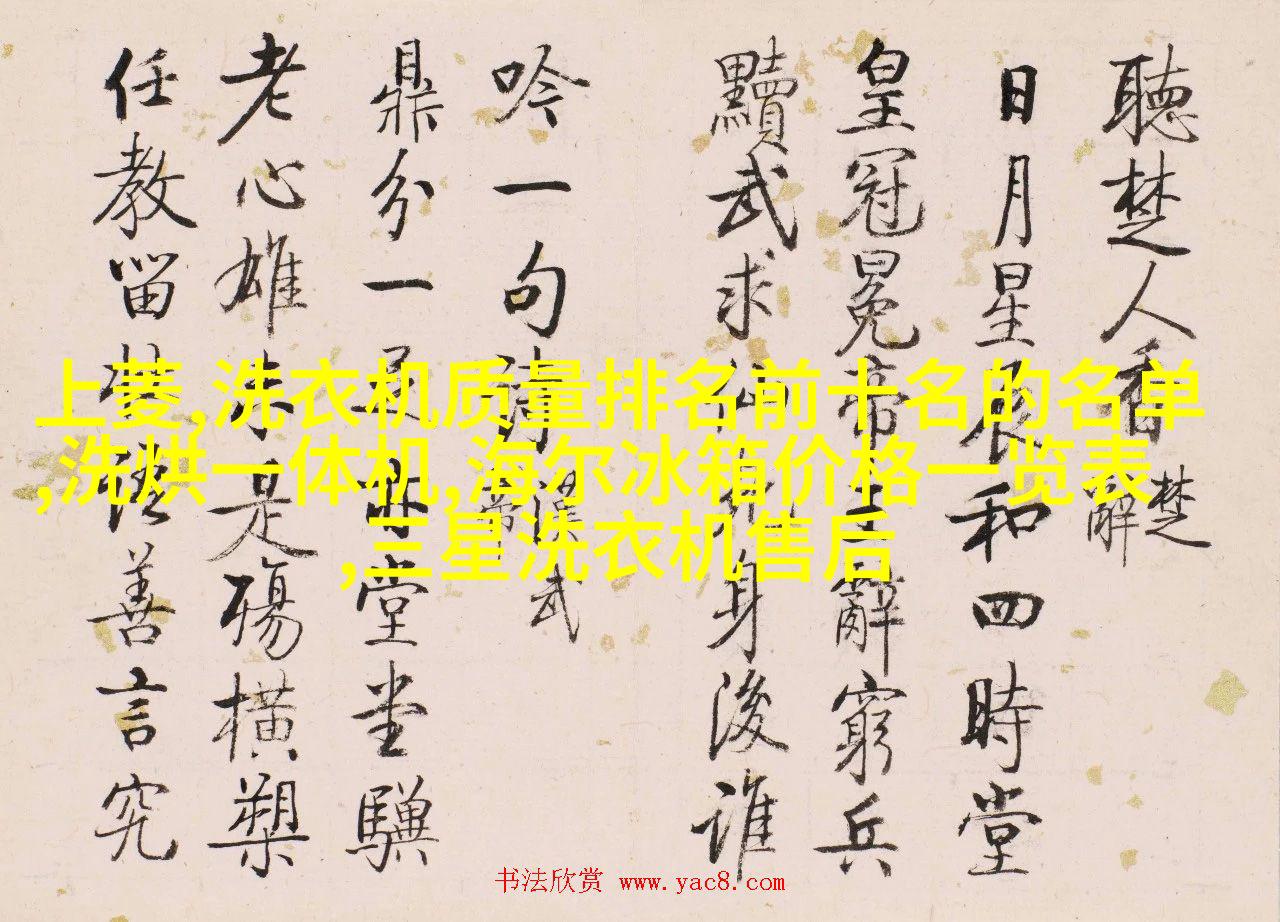 聽楚人香 楚辭
日月星辰和四時堂
皇冠冕帝王辭窮兵
黷武求仙身後誰
吟一句詩 漢武帝
鼎分一堂堂驥
老心雄未是殤橫槊
任教留語善言究
上菱,洗衣机质量排名前十名的名单
,洗烘一体机,海尔冰箱价格一览表
,三星洗衣机售后
书法欣赏 www.yac8.com